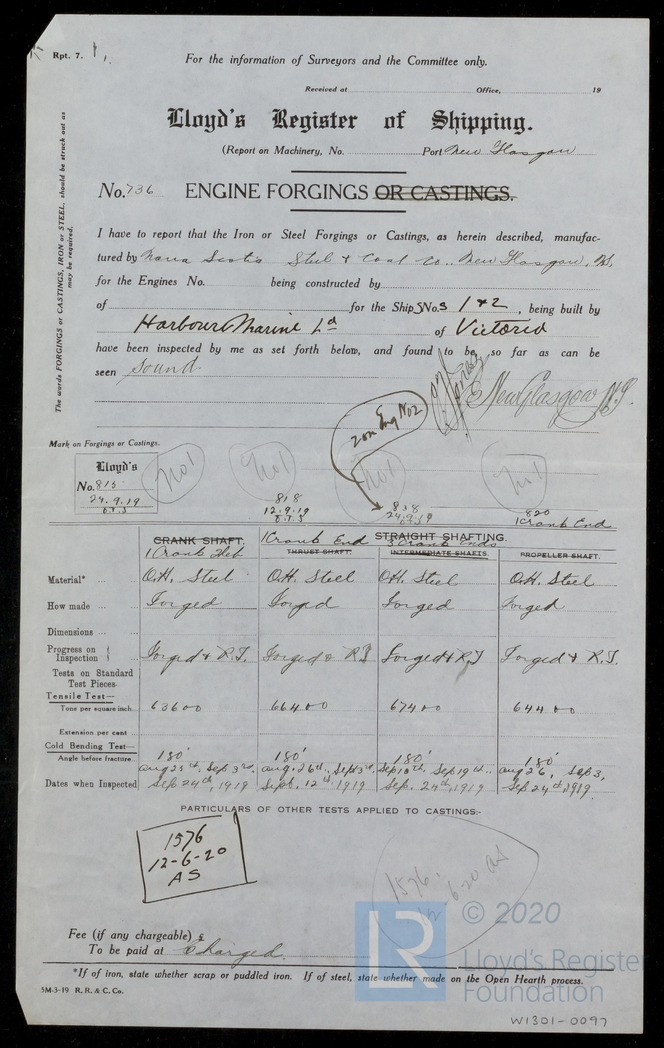 Rpt. 7.
For the information of Surveyors and the Committee only.
Received at Office, 19
Lloyd's Register of Shipping.
(Report on Machinery, No. Port New Glasgow
No. 736 ENGINE FORGINGS OR CASTINGS.
The words FORGINGS or CASTINGS, IRON or STEEL, should be struck out as may be required.
I have to report that the Iron or Steel Forgings or Castings, as herein described, manufac-
tured by Nova Scotia Steel & Coal Co., New Glasgow, N.S.
for the Engines No. being constructed by
of for the Ship SNo.s 1 & 2, being built by
Harbour Marine Ld of Victoria
have been inspected by me as set forth below, and found to be, so far as can be
seen sound.
New Glasgow N.S.
2 on Eng No 2
Mark on Forgings or Castings.
Lloyd's
No. 815
24.9.19
No 1
No 1
818
12.9.19
No 1
838
24.9.19
No 1
820
1 Crank End
CRANK SHAFT. 1 Crank End STRAIGHT SHAFTING. 3 Crank Ends
1 Crank Web THRUST SHAFT. INTERMEDIATE SHAFTS. PROPELLER SHAFT.
Material* O.H. Steel O.H. Steel O.H. Steel O.H. Steel
How made Forged Forged Forged Forged
Dimensions
Progress on Inspection Forged & R.T. Forged & R.T Forged & R.T Forged & R.T.
Tests on Standard
Test Pieces-
Tensile Test—
Tons per square inch 63600 66400 67400 64400
Extension per cent
Cold Bending Test—
Angle before fracture 180° 180° 180° 180°
Dates when Inspected Aug 25th, Sep 3rd, Sep 24th, 1919 Aug. 26th, Sept 3rd, Sept. 12th, 1919 Sep 10th, Sep 19th, Sep. 24th, 1919 Aug 26, Sep 3, Sep 24th, 1919.
PARTICULARS OF OTHER TESTS APPLIED TO CASTINGS:-
1576
12-6-20
AS
1576.
12 6 20 AS
Fee (if any chargeable) £
To be paid at Charged.
*If of iron, state whether scrap or puddled iron. If of steel, state whether made on the Open Hearth process.
5M-3-19 R. R. & C. Co.
LR
© 2020
Lloyd's Register
Foundation
W1301-0097